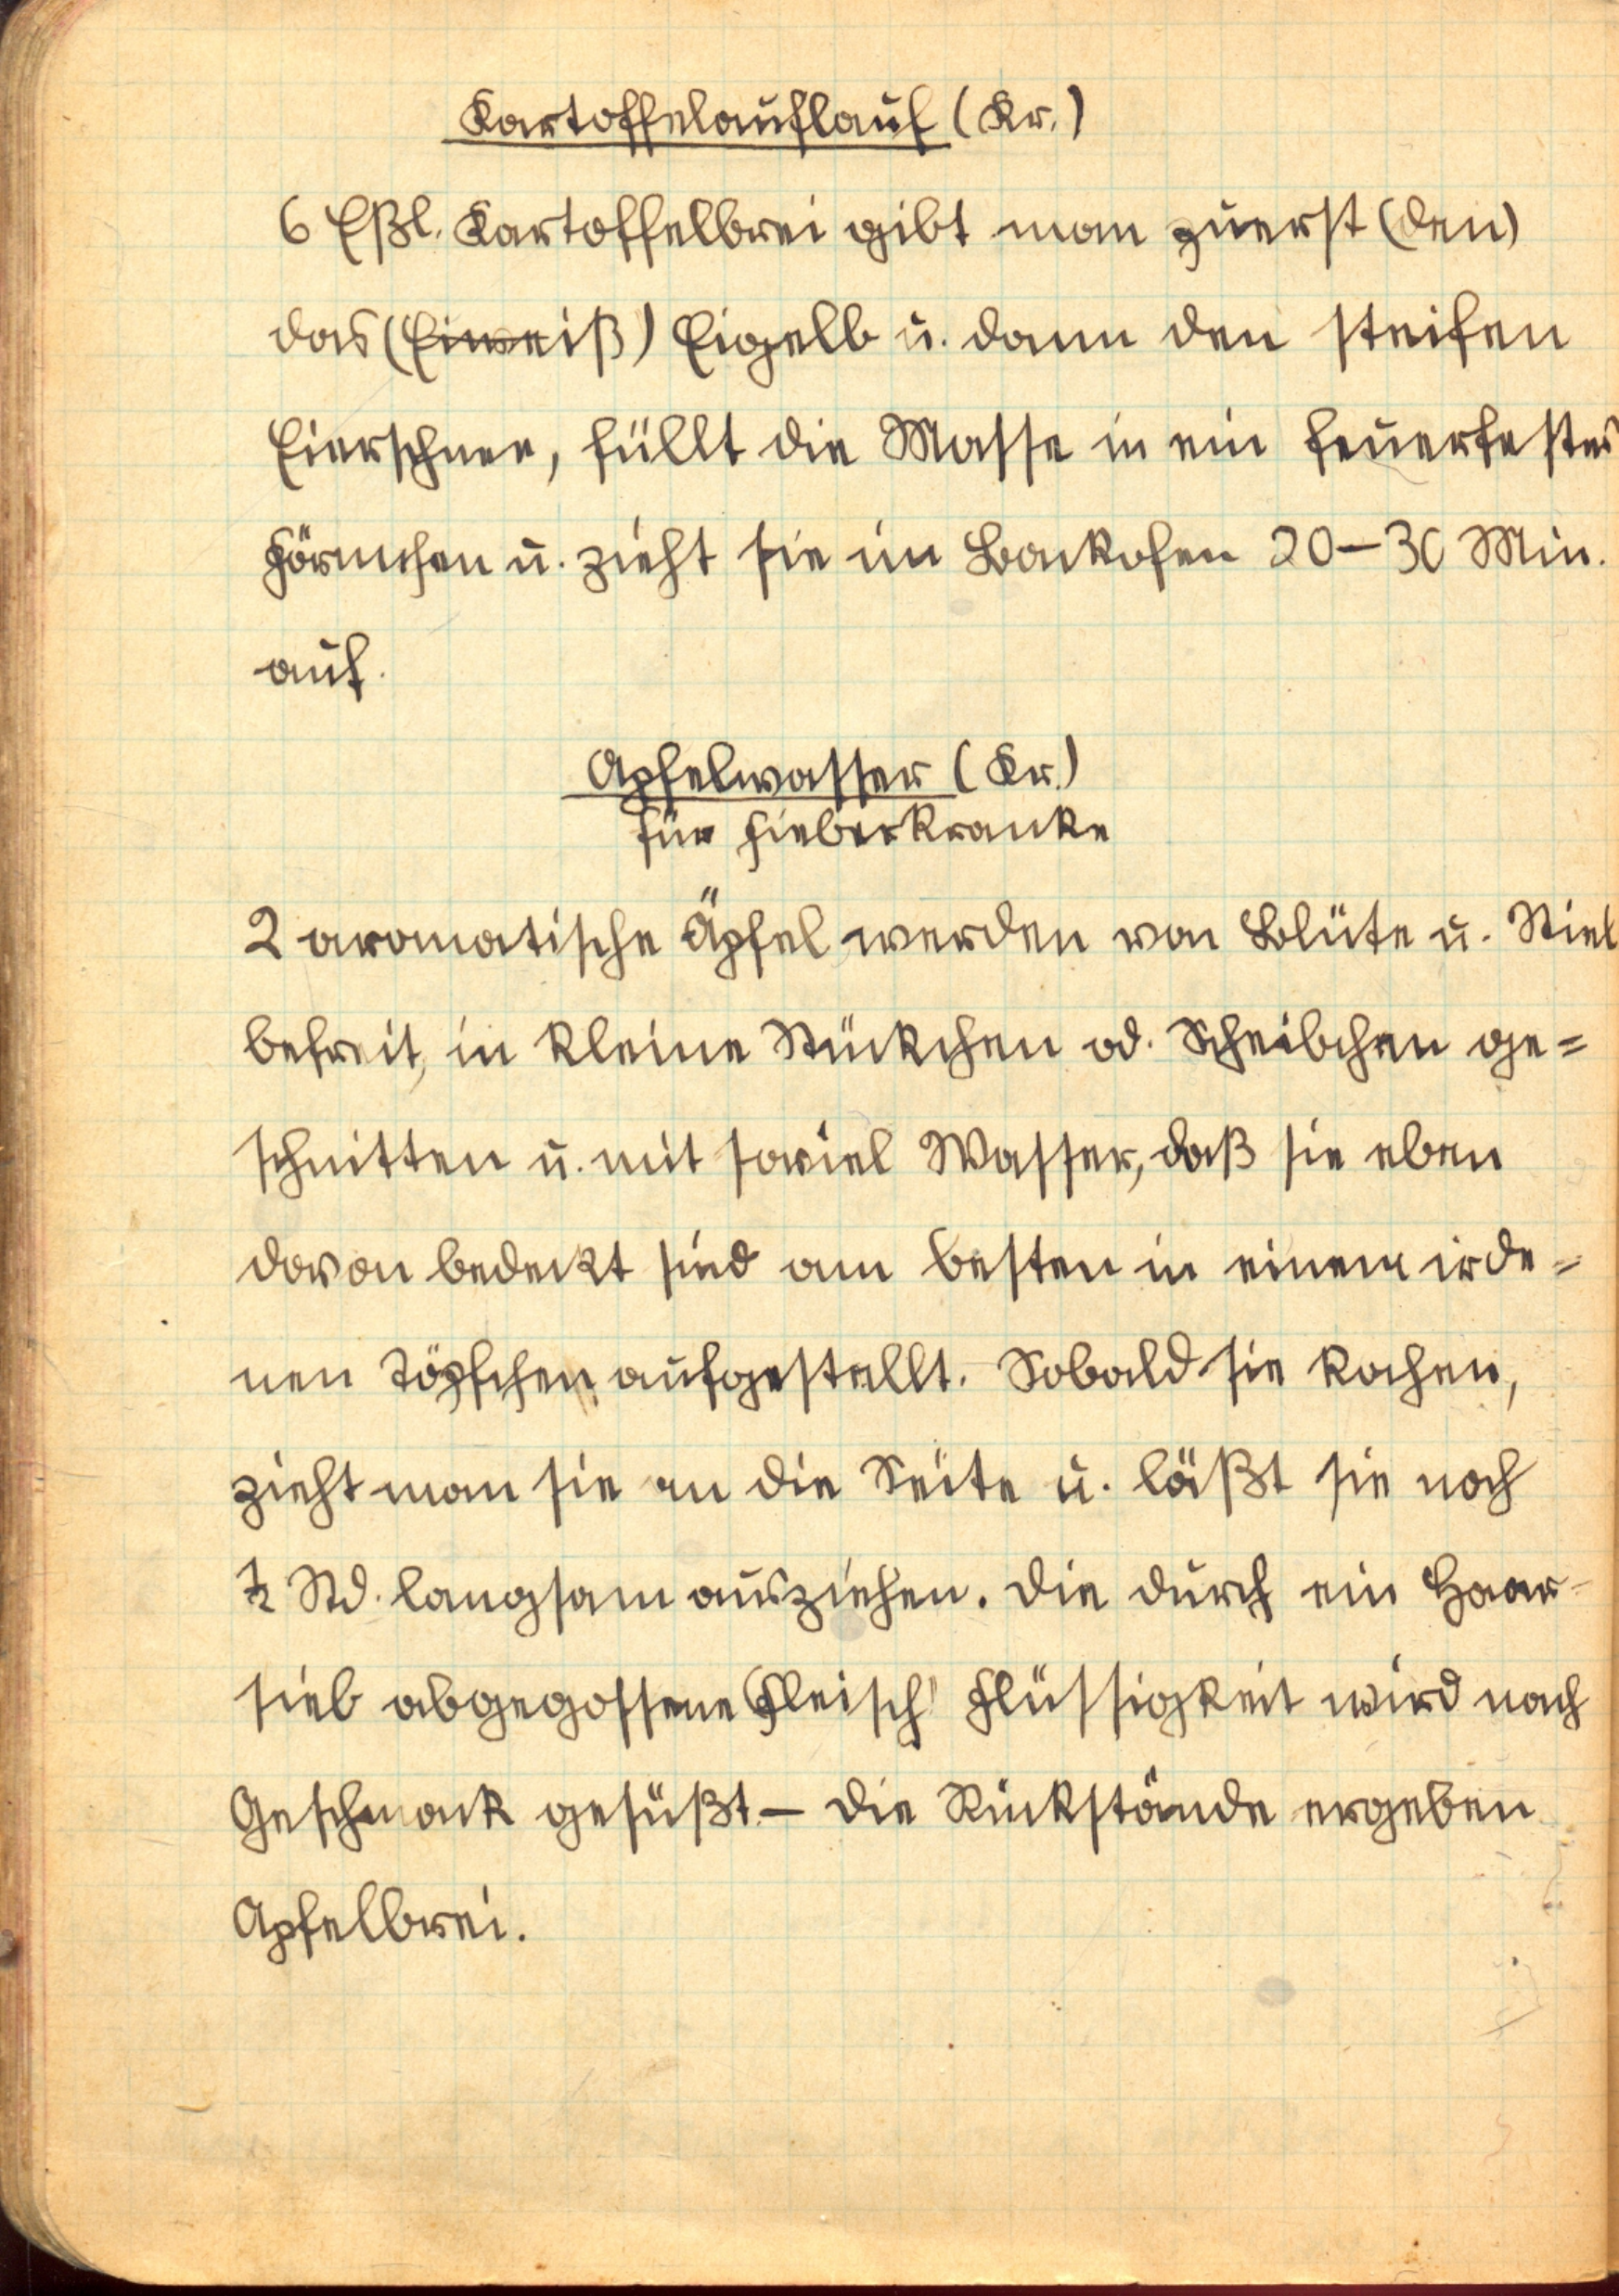 Kartoffelauflauf (Kr.)
6 Eßl. Kartoffelbrei gibt man zuerst (den)
das (Eiweiß) Eigelb u. dann den steifen
Eierschnee, füllt die Masse in ein feuerfestes
Förmchen u. zieht sie im Backofen 20–30 Min.
auf.
Apfelwasser (Kr.)
für Fieberkranke
2 aromatische Äpfel werden von Blüte u. Stiel
befreit, in kleine Stückchen od. Scheibchen ge=
schnitten u. mit soviel Wasser, daß sie eben
davon bedeckt sind am besten in einem irde=
nen Töpfchen aufgestellt. Sobald sie kochen,
zieht man sie an die Seite u. läßt sie noch
½ Std. langsam ausziehen. Die durch ein Haar-
sieb abgegossene (Fleisch) Flüssigkeit wird nach
Geschmack gesüßt. – Die Rückstände ergeben
Apfelbrei.